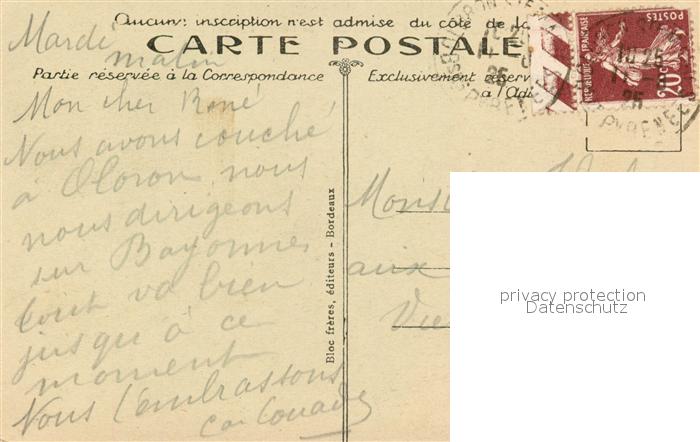 Aucune inscription n'est admise du côté de la
CARTE POSTALE
Partie réservée à la Correspondance
Exclusivement réserv
à l'Ad
Mardi
matin
Mon cher René
Nous avons couché
à Oloron, nous
nous dirigeons
sur Bayonne
tout va bien
jusqu'à ce
moment
Nous t'embrassons
Bloc frères, éditeurs - Bordeaux
Mons
aux
POSTES
20c
REPUBLIQUE FRANÇAISE
OLORON
10-25
25
PYRENEES
privacy protection
Datenschutz